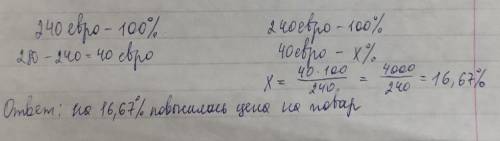 240 евро - 100%
280 - 240 = 40 евро
240 евро - 100%
40 евро - x%
x = 40 · 100 / 240 = 4000 / 240 = 16,67%
Ответ: на 16,67% повысилась цена на товар